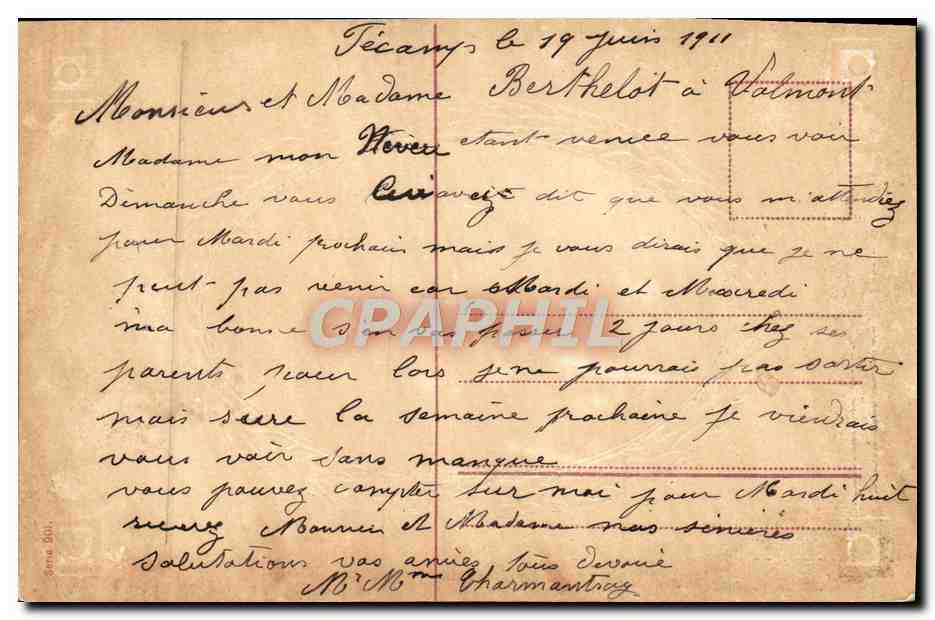 Fécamp le 19 Juin 1911
Monsieur et Madame Berthelot à Valmont
Madame mon Neveu etant venue vous voir
Dimanche vous lui avez dit que vous m'attendiez
pour Mardi prochain mais je vous dirais que je ne
peut pas venir car Mardi et Mercredi
ma bonne s'en vas passer 2 jours chez ses
parents pour lors je ne pourrais pas sortir
mais sure la semaine prochaine je viendrais
vous voir sans manque
vous pouvez compter sur moi pour Mardi huit
recevez Monsieur et Madame nos sincères
salutations vos amies tous devoué
Mr Mme
CRAPHIL
Serie 901.